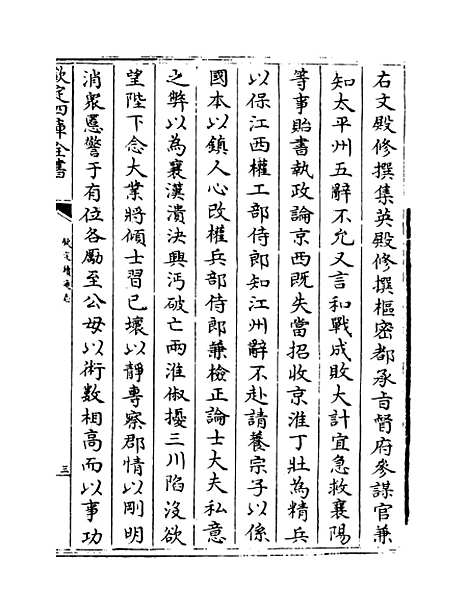 右文殿修撰集英殿修撰樞密都承㫖督府參謀官兼
知太平州五辭不允又言和戰成敗大計宜急救襄陽
等事貽書執政論京西既失當招收京淮丁壯為精兵
以保江西權工部侍郎知江州辭不赴請養宗子以係
國本以鎮人心改權兵部侍郎兼檢正論士大夫私意
之弊以為襄漢潰決興沔破亡兩淮俶擾三川陷沒欲
望陛下念大業將傾士習已壊以靜專察郡情以剛明
消衆慝警于有位各勵至公毋以術數相高而以事功
欽定四庫全書
欽定續通志
三